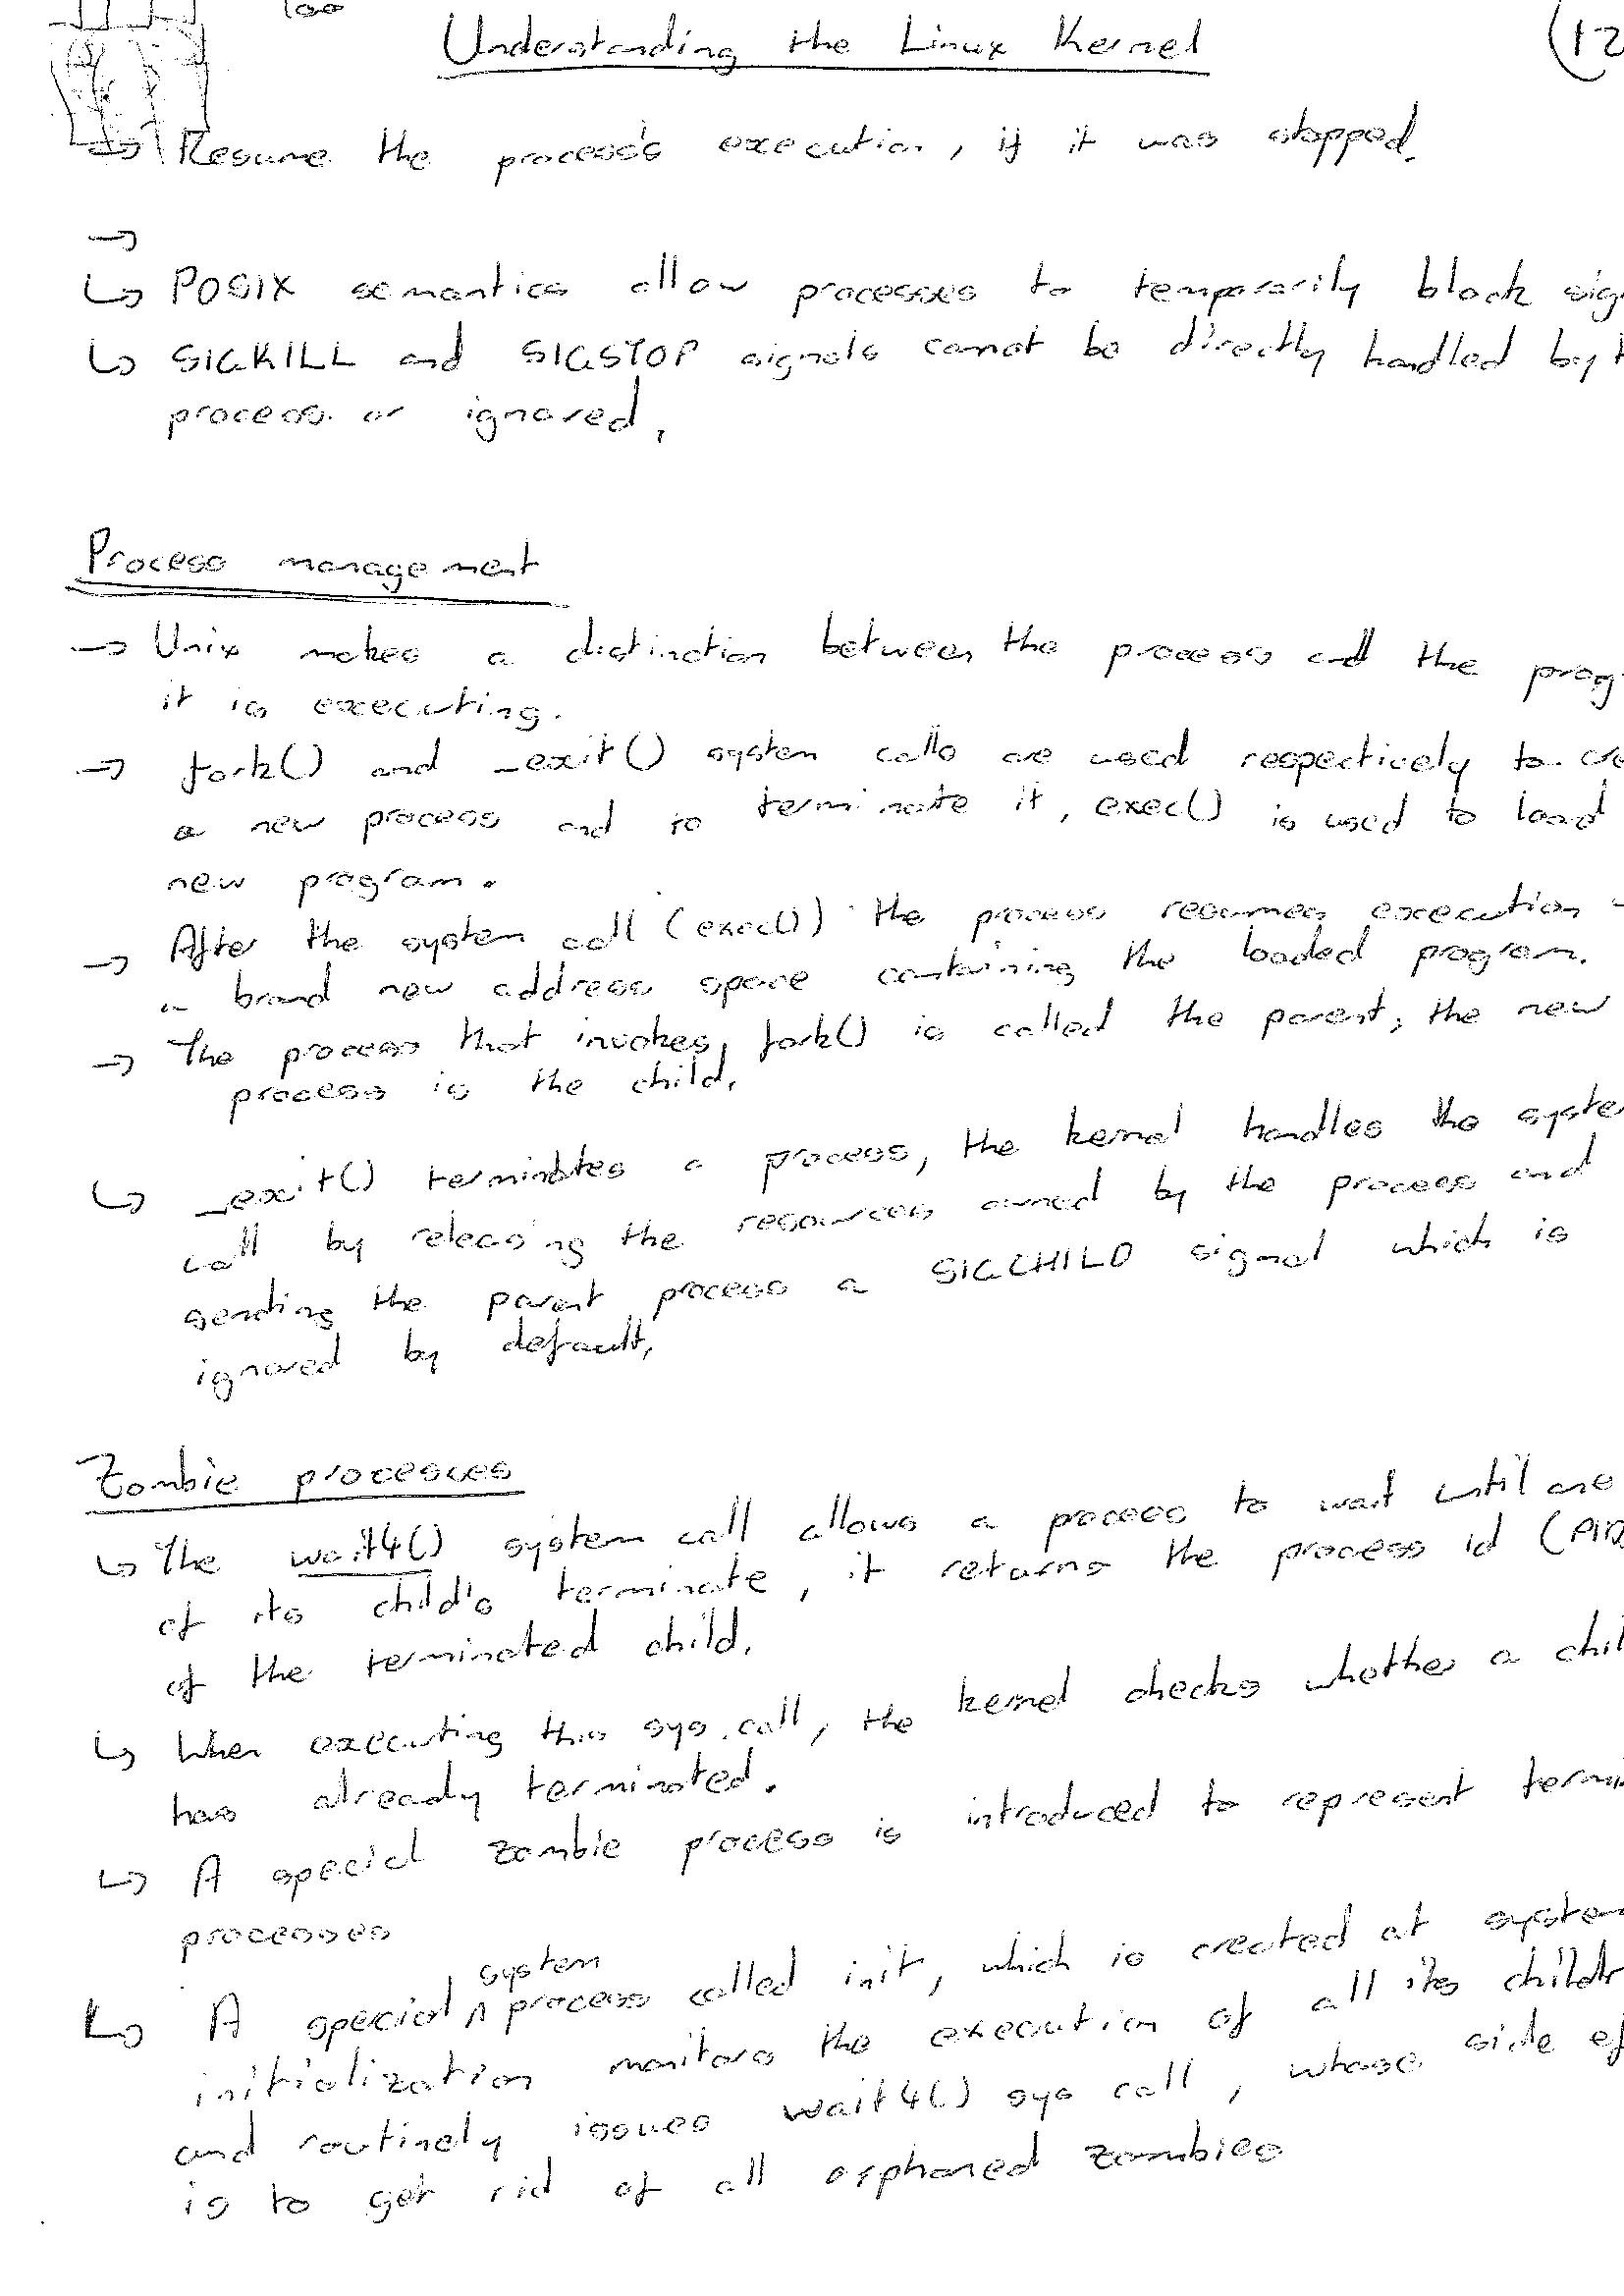 Understanding the Linux Kernel (12
→ Resume the process's execution, if it was stopped.
→
↳ POSIX semantics allow processes to temporarily block sig
↳ SIGKILL and SIGSTOP signals cannot be directly handled by
process or ignored.
Process management
→ Unix makes a distinction between the process and the prog
it is executing.
→ fork() and _exit() system calls are used respectively to cre
a new process and to terminate it, exec() is used to load
new program.
→ After the system call (exec()) the process resumes execution
in brand new address space containing the loaded program.
→ The process that invokes fork() is called the parent, the new
process is the child.
↳ _exit() terminates a process, the kernel handles the syste
call by releasing the resources owned by the process and
sending the parent process a SIGCHILD signal which is
ignored by default.
Zombie processes
↳ The wait4() system call allows a process to wait until one
of its child's terminate, it returns the process id (PID
of the terminated child.
↳ When executing this sys.call, the kernel checks whether a chil
has already terminated.
↳ A special zombie process is introduced to represent termi
processes
↳ A special system process called init, which is created at system
initialization monitors the execution of all its childr
and routinely issues wait4() sys call, whose side ef
is to get rid of all orphaned zombies